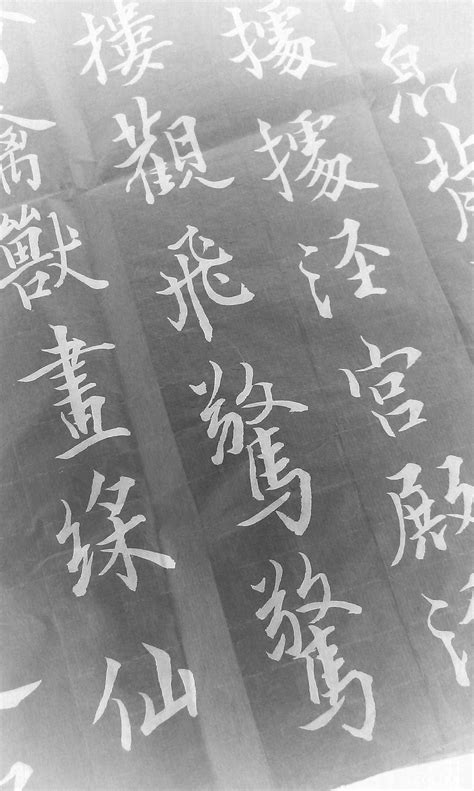 背
據據涇宮殿
樓觀飛驚驚
禽獸畫綵仙